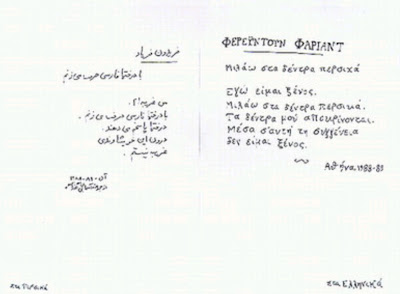 فریدون فریاد
با درختها فارسی حرف می زنم
من غریبم
با درختها فارسی حرف می زنم .
درختها پاسخم می دهند .
درون این خویشاوندی
غریب نیستم .
στα Περσικά
ΦΕΡΕΫΝΤΟΥΝ ΦΑΡΙΑΝΤ
Μιλάω στα δέντρα περσικά
Εγώ είμαι ξένος.
Μιλάω στα δέντρα περσικά.
Τα δέντρα μού αποκρίνονται.
Μέσα σ'αυτή τη συγγένεια
δεν είμαι ξένος.
Αθήνα, 1988-89
στα Ελληνικά